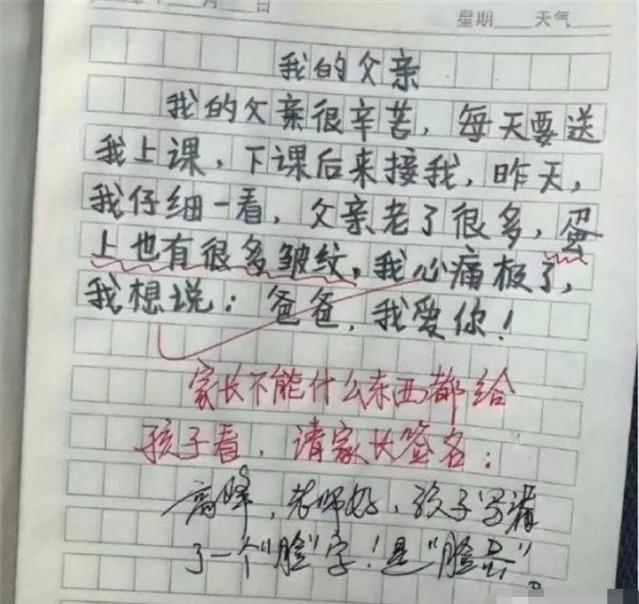 月 日
星期 天气
我的父亲
我的父亲很辛苦，每天要送
我上课，下课后来接我，昨天，
我仔细一看，父亲老了很多，蛋
上也有很多皱纹，我心痛极了，
我想说：爸爸，我爱你！
家长不能什么东西都给
孩子看，请家长签名：
高峰，老师好，孩子写漏
了一个"脸"字！是"脸蛋"。